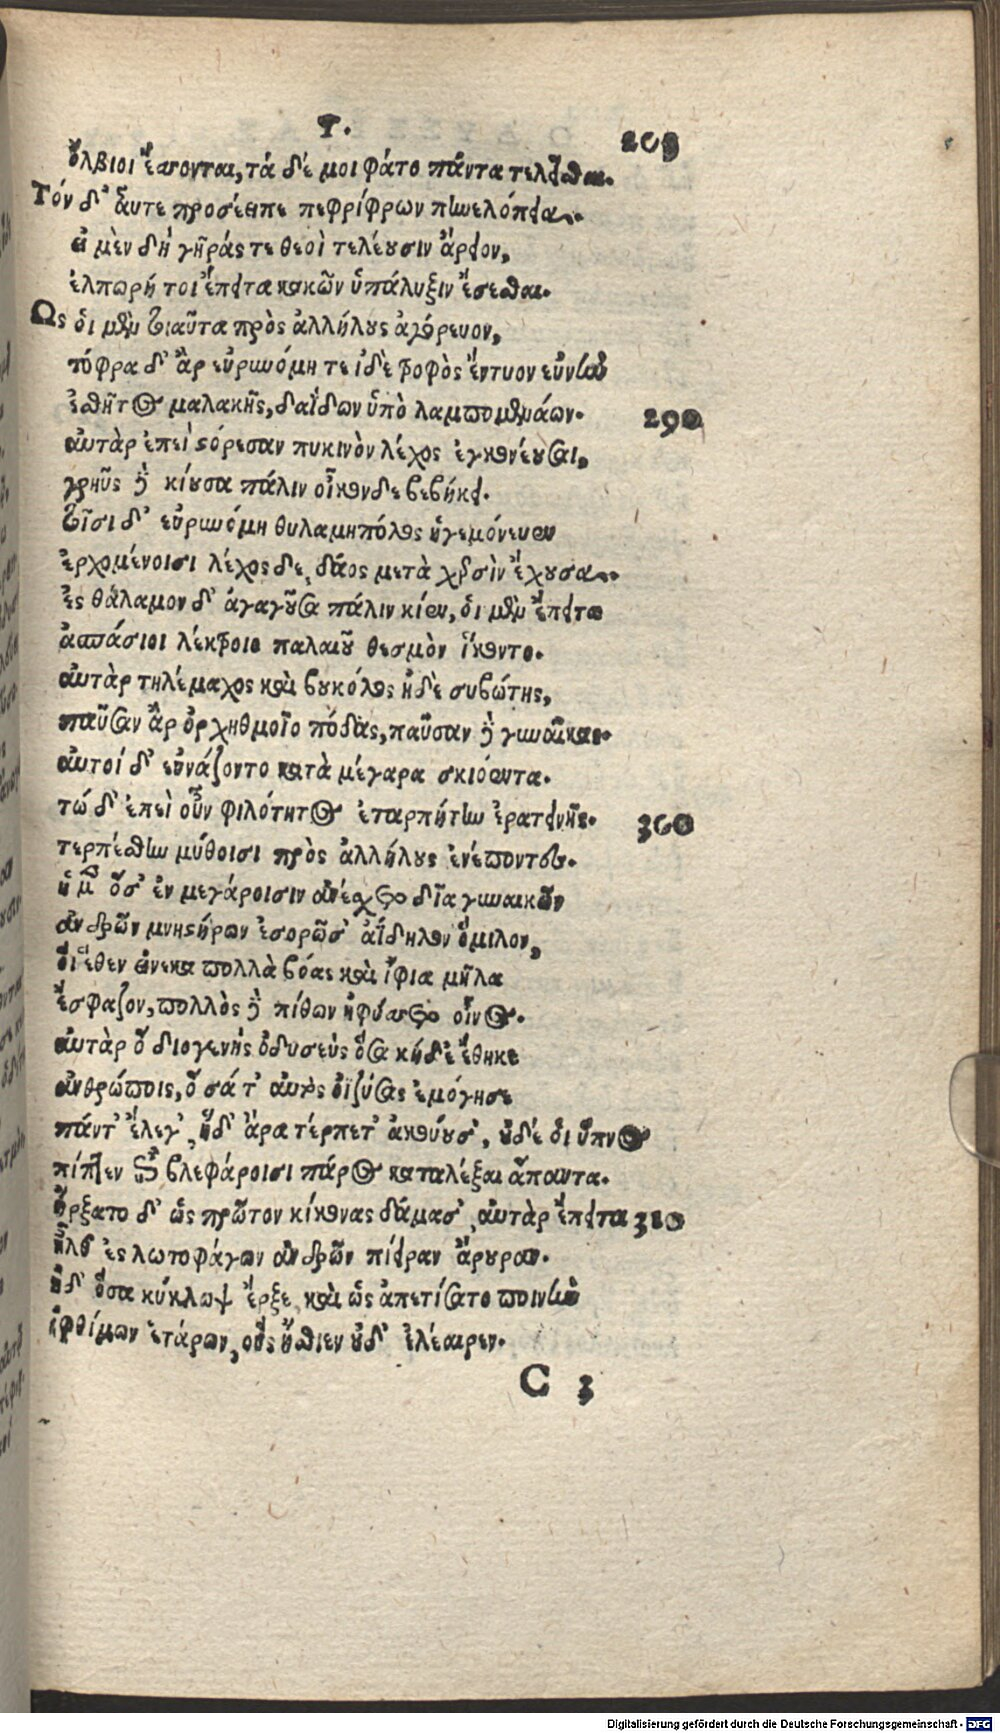 Ψ. 209
ὄλβιοι ἔσσονται, τὰ δέ μοι φάτο πάντα τελεῖσθαι.
Τόν δ' αὖτε προσέειπε περίφρων πηνελόπεια.
εἰ μὲν δὴ γῆράς τε θεοὶ τελέουσιν ἄρειον,
ἐλπωρή τοι ἔπειτα κακῶν ὑπάλυξιν ἔσεσθαι.
Ως οἱ μὲν τοιαῦτα πρὸς ἀλλήλους ἀγόρευον,
τόφρα δ' ἂρ εὐρυνόμη τε ἰδὲ τροφὸς ἔντυον εὐνὴν
ἐσθῆτος μαλακῆς, δαΐδων ὑπὸ λαμπομενάων. 290
αὐτὰρ ἐπεὶ στόρεσαν πυκινὸν λέχος ἐγκονέουσαι,
γρηῢς δὲ κείουσα πάλιν οἶκονδε βεβήκει.
τοῖσι δ' εὐρυνόμη θαλαμηπόλος ἡγεμόνευεν
ἐρχομένοισι λέχος δε, δάος μετὰ χερσὶν ἔχουσα.
ἐς θάλαμον δ' ἀγαγοῦσα πάλιν κίεν, οἱ μὲν ἔπειτα
ἀσπάσιοι λέκτροιο παλαιοῦ θεσμὸν ἵκοντο.
αὐτὰρ τηλέμαχος καὶ βουκόλος ἠδὲ συβώτης,
παῦσαν ἂρ ὀρχηθμοῖο πόδας, παῦσαν δὲ γυναῖκας.
αὐτοί δ' εὐνάζοντο κατὰ μέγαρα σκιόεντα.
τώ δ' ἐπεὶ οὖν φιλότητος ἐταρπήτην ἐρατεινῆς. 300
τερπέσθην μύθοισι πρὸς ἀλλήλους ἐνέποντες.
ἡ μὲν ὅσ' ἐν μεγάροισιν ἀνέσχετο δῖα γυναικῶν
ἀνδρῶν μνηστήρων ἐσορῶσ' ἀΐδηλον ὅμιλον,
οἳ ἕθεν ἕνεκα πολλὰ βόας καὶ ἴφια μῆλα
ἔσφαζον, πολλὸς δὲ πίθων ἠφύσσετο οἶνος.
αὐτὰρ ὁ διογενὴς ὀδυσεὺς ὅσα κήδε' ἔθηκε
ἀνθρώποις, ὅσά τ' αὐτὸς ὀϊζύσας ἐμόγησε
πάντ' ἔλεγ', ἡ δ' ἄρα τέρπετ' ἀκούουσ', οὐδέ οἱ ὕπνος
πίπτεν ἐπὶ βλεφάροισι πάρος καταλέξαι ἅπαντα.
ἤρξατο δ' ὡς πρῶτον κίκονας δάμασ', αὐτὰρ ἔπειτα 310
ἦλθ' ἐς λωτοφάγων ἀνδρῶν πίειραν ἄρουραν.
ἠδ' ὅσα κύκλωψ ἔρξε, καὶ ὡς ἀπετίσατο ποινὴν
ἰφθίμων ἑτάρων, οὓς ἤσθιεν οὐδ' ἐλέαιρεν.
C 3
Digitalisierung gefördert durch die Deutsche Forschungsgemeinschaft - DFG